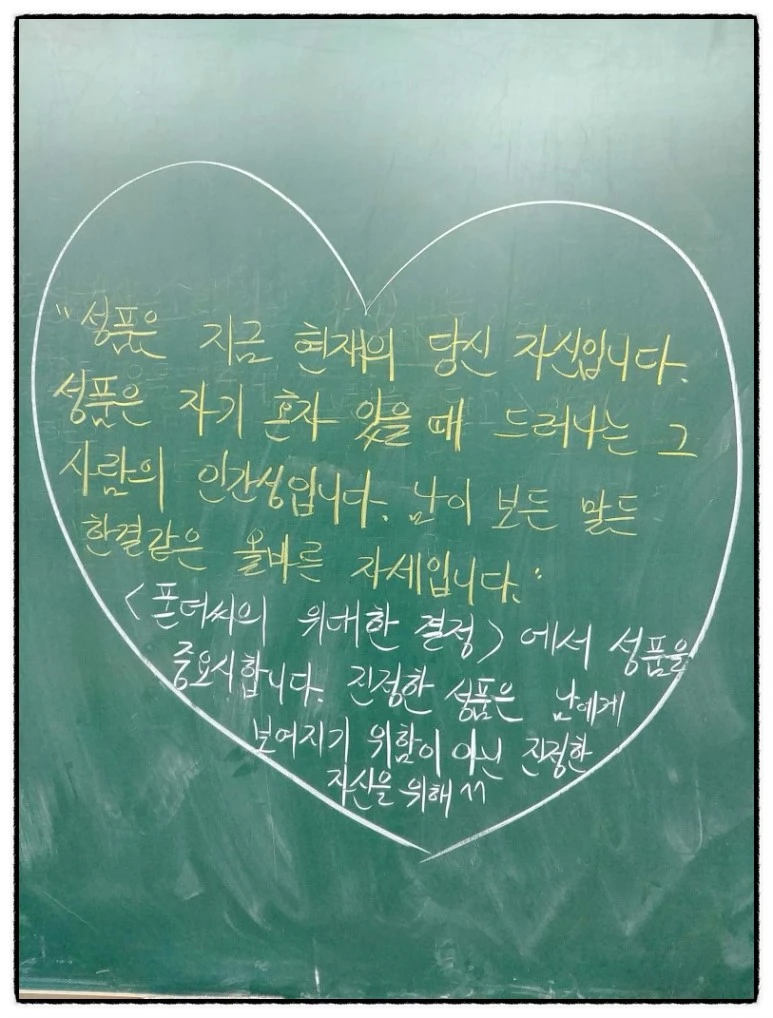 "성품은 지금 현재의 당신 자신입니다.
성품은 자기 혼자 있을 때 드러나는 그
사람의 인간성입니다. 남이 보든 말든
한결같은 올바른 자세입니다."
<폰더씨의 위대한 결정> 에서 성품을
중요시합니다. 진정한 성품은 남에게
보여지기 위함이 아닌 진정한
자신을 위해^^